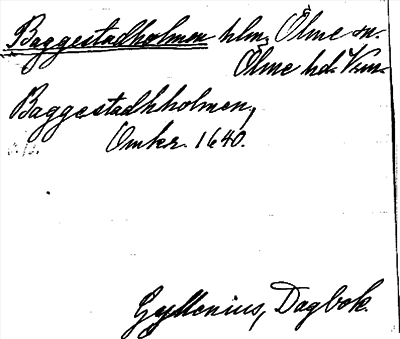 Baggestadholmen hlm, Ölme sn.
Ölme hd. Vrm.
Baggestadhholmen,
Omkr. 1640.
Gyllenius, Dagbok.